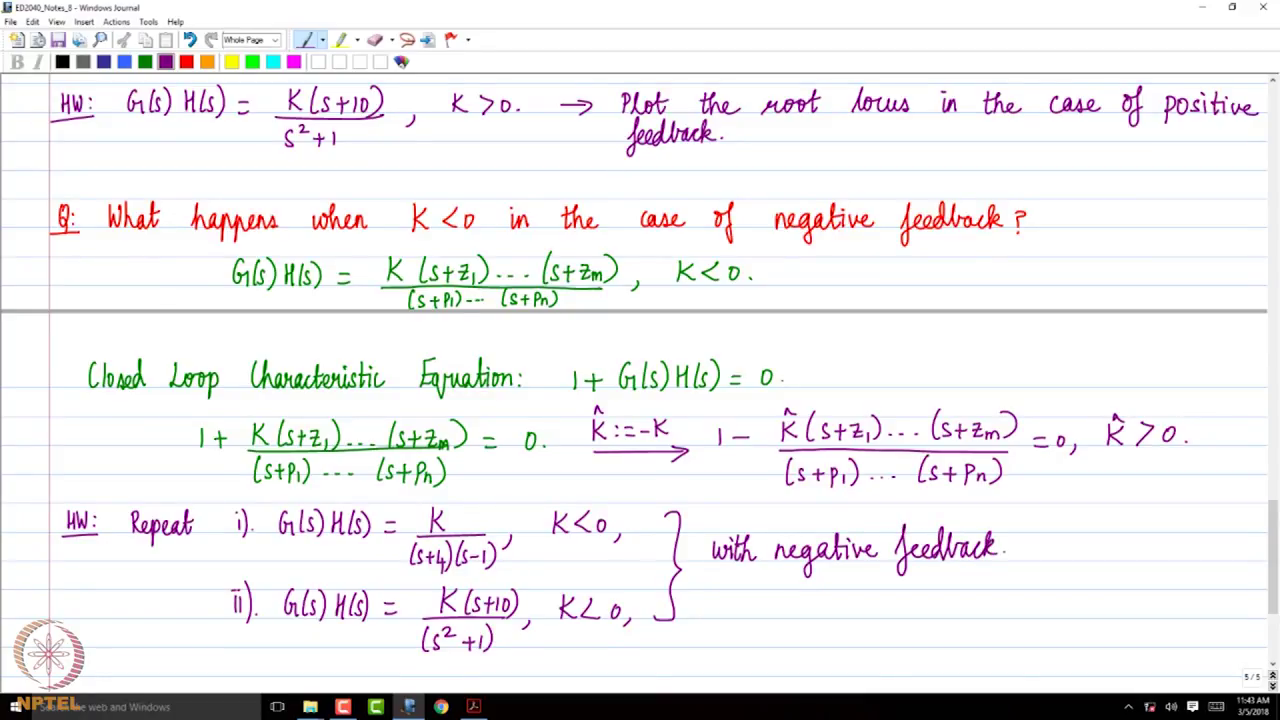 ED2040_Notes_8 - Windows Journal
File Edit View Insert Actions Tools Help
Whole Page
B I
HW: G(s) H(s) = K(s+10) / s²+1 , K > 0. → Plot the root locus in the case of positive
feedback.
Q: What happens when K < 0 in the case of negative feedback?
G(s) H(s) = K (s+z₁) ... (s+zₘ) / (s+p₁) ... (s+pₙ) , K < 0.
Closed Loop Characteristic Equation: 1 + G(s) H(s) = 0.
1 + K (s+z₁) ... (s+zₘ) / (s+p₁) ... (s+pₙ) = 0. K̂ := -K → 1 - K̂ (s+z₁) ... (s+zₘ) / (s+p₁) ... (s+pₙ) = 0, K̂ > 0.
HW: Repeat i). G(s) H(s) = K / (s+4)(s-1) , K < 0,
ii). G(s) H(s) = K(s+10) / (s²+1) , K < 0, } with negative feedback.
5/5
NPTEL
Search the web and Windows
11:43 AM
3/5/2018